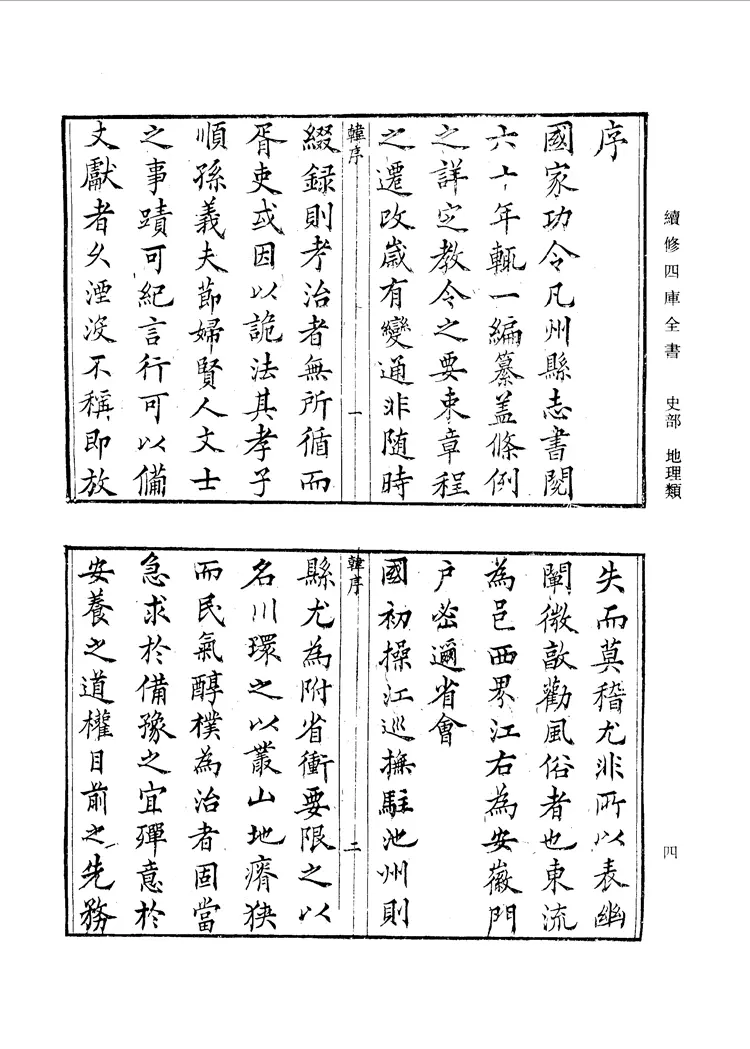 續修四庫全書 史部 地理類
四
序
國家功令凡州縣志書閱
六十年輒一編纂蓋條例
之詳定教令之要束章程
之遷改歲有變通非随時
韓序
一
綴録則考治者無所循而
胥吏或因以詭法其孝子
順孫義夫節婦賢人文士
之事蹟可紀言行可以備
文獻者久湮沒不稱即放
失而莫稽尤非所以表幽
闡微敦勸風俗者也東流
為邑西界江右為安徽門
户密邇省會
國初操江巡撫駐池州則
韓序
二
縣尤為附省衝要限之以
名川環之以叢山地瘠狹
而民氣醇樸為治者固當
急求於備豫之宜殫意於
安養之道權目前之先務